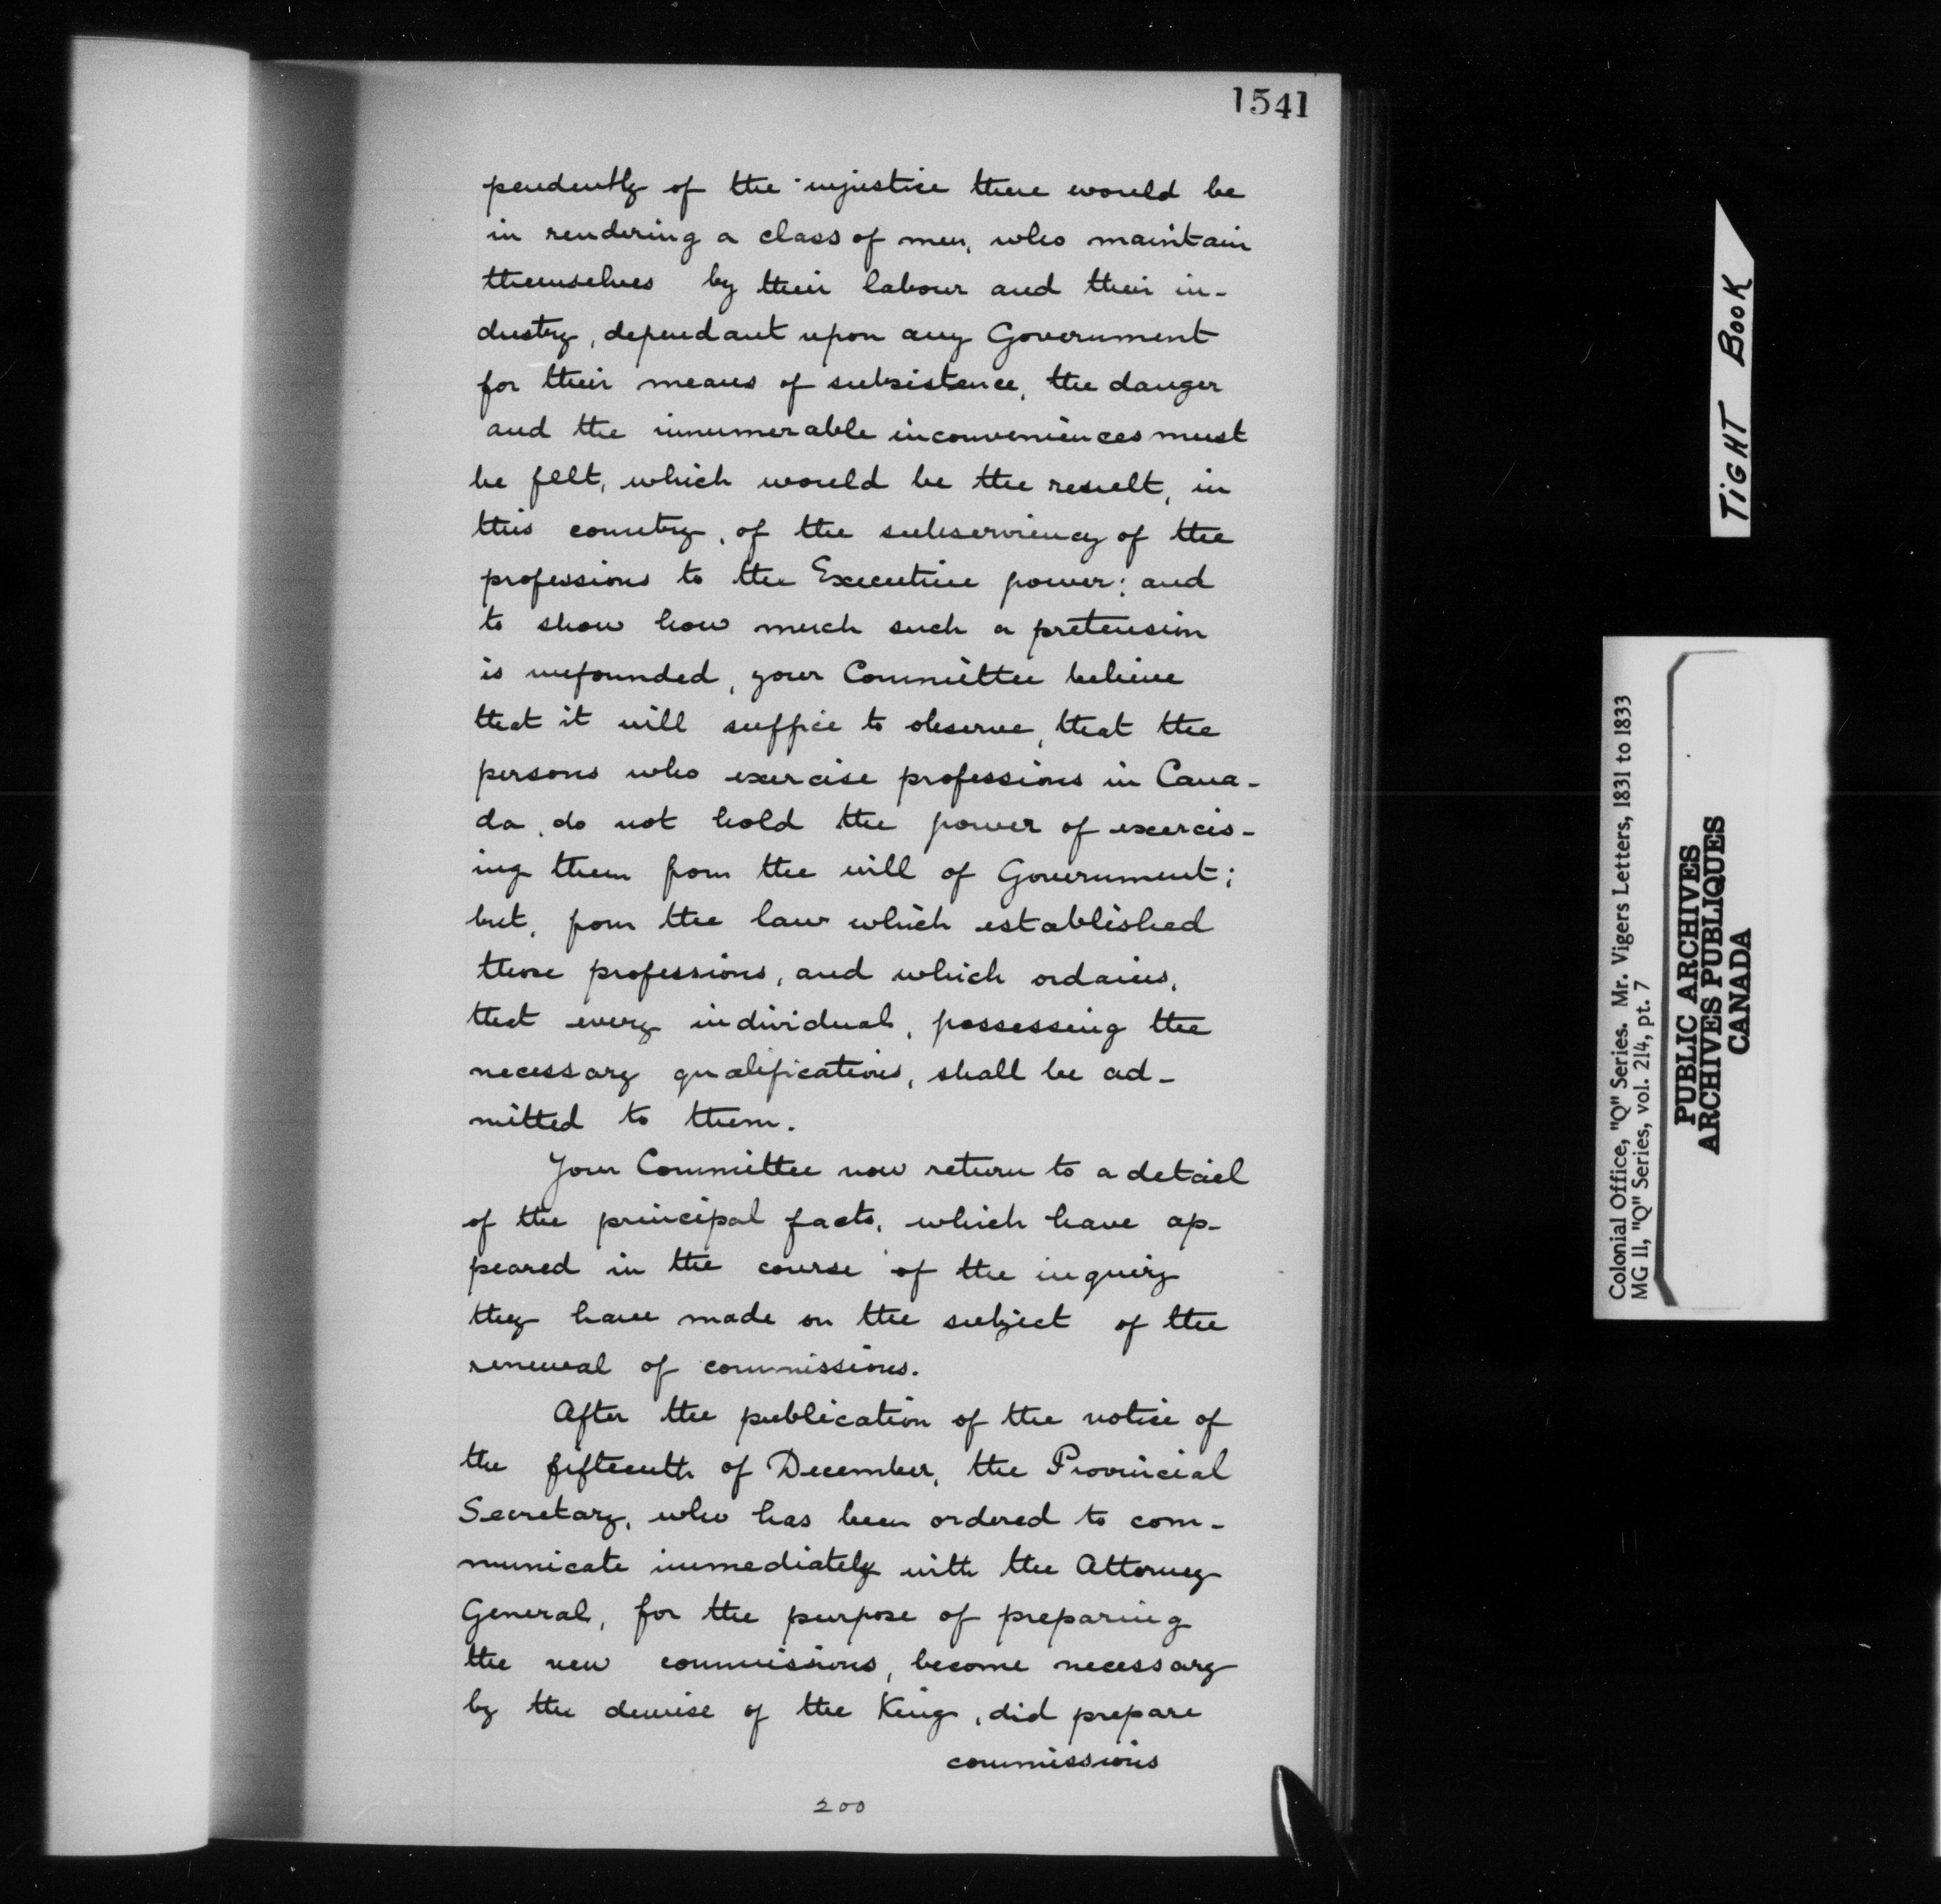 1541
pendently of the injustice there would be
in rendering a class of men, who maintain
themselves by their labour and their in-
dustry, dependant upon any Government
for their means of subsistence, the danger
and the innumerable inconveniences must
be felt, which would be the result, in
this country, of the subserviency of the
professions to the Executive power; and
to show how much such a pretension
is unfounded, your Committee believe
that it will suffice to observe, that the
persons who exercise professions in Cana-
da, do not hold the power of exercis-
ing them from the will of Government;
but, from the law which established
those professions, and which ordains,
that every individual, possessing the
necessary qualifications, shall be ad-
mitted to them.
Your Committee now return to a detail
of the principal facts, which have ap-
peared in the course of the inquiry
they have made on the subject of the
renewal of commissions.
After the publication of the notice of
the fifteenth of December, the Provincial
Secretary, who has been ordered to com-
municate immediately with the Attorney
General, for the purpose of preparing
the new commissions, become necessary
by the demise of the King, did prepare
commissions
200
TIGHT BOOK
Colonial Office, "Q" Series. Mr. Vigers Letters, 1831 to 1833
MG 11, "Q" Series, vol. 214, pt. 7
PUBLIC ARCHIVES
ARCHIVES PUBLIQUES
CANADA